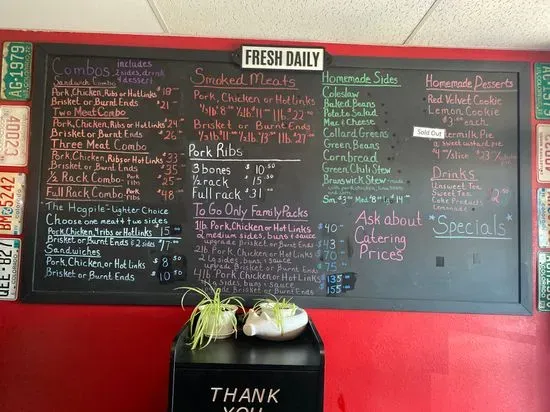 FRESH DAILY
Combos includes
2 sides, drink
& dessert
Sandwich Combo
Pork, Chicken, Ribs or Hot Links $18
Brisket or Burnt Ends $21
Two Meat Combo
Pork, Chicken, Ribs or Hot Links $24
Brisket or Burnt Ends $26
Three Meat Combo
Pork, Chicken, Ribs or Hot Links $33
Brisket or Burnt Ends $35
1/2 Rack Combo- Pork Ribs $25
Full Rack Combo- Pork Ribs $48
"The Hogpile"-Lighter Choice
Choose one meat & two sides
Pork, Chicken, Ribs or Hot Links $15
Brisket or Burnt Ends & 2 sides $17
Sandwiches
Pork, Chicken or Hot Links $8.50
Brisket or Burnt Ends $10.50
Smoked Meats
Pork, Chicken or Hot Links
1/2 lb 1 lb $22
Brisket or Burnt Ends
1/2 lb 1 lb $27
Pork Ribs
3 bones $10.50
1/2 rack $15.50
Full rack $31
To Go Only Family Packs
1 lb Pork, Chicken or Hot Links $40
2 medium sides, buns & sauce
upgrade Brisket or Burnt Ends $43
2 lb Pork, Chicken or Hot Links $70
2 Lg sides, buns & sauce
upgrade Brisket or Burnt Ends $75
4 lb Pork, Chicken or Hot Links
4 Lg sides, buns & sauce $135
Brisket or Burnt Ends $155
Homemade Sides
Coleslaw
Baked Beans
Potato Salad
Mac & Cheese
Collard Greens
Green Beans
Cornbread
Green Chili Stew
Brunswick Stew
Sm. $3 Med. $8 Lg $14
Ask about
Catering
Prices
Homemade Desserts
Red Velvet Cookie
Lemon Cookie
$3 each
Sold Out
ermilk Pie
a sweet custard pie
$4/slice $23/
Drinks
Unsweet Tea
Sweet Tea
Coke Products
Lemonade
$2.50
*Specials*
AG·1979
THANK
YOU